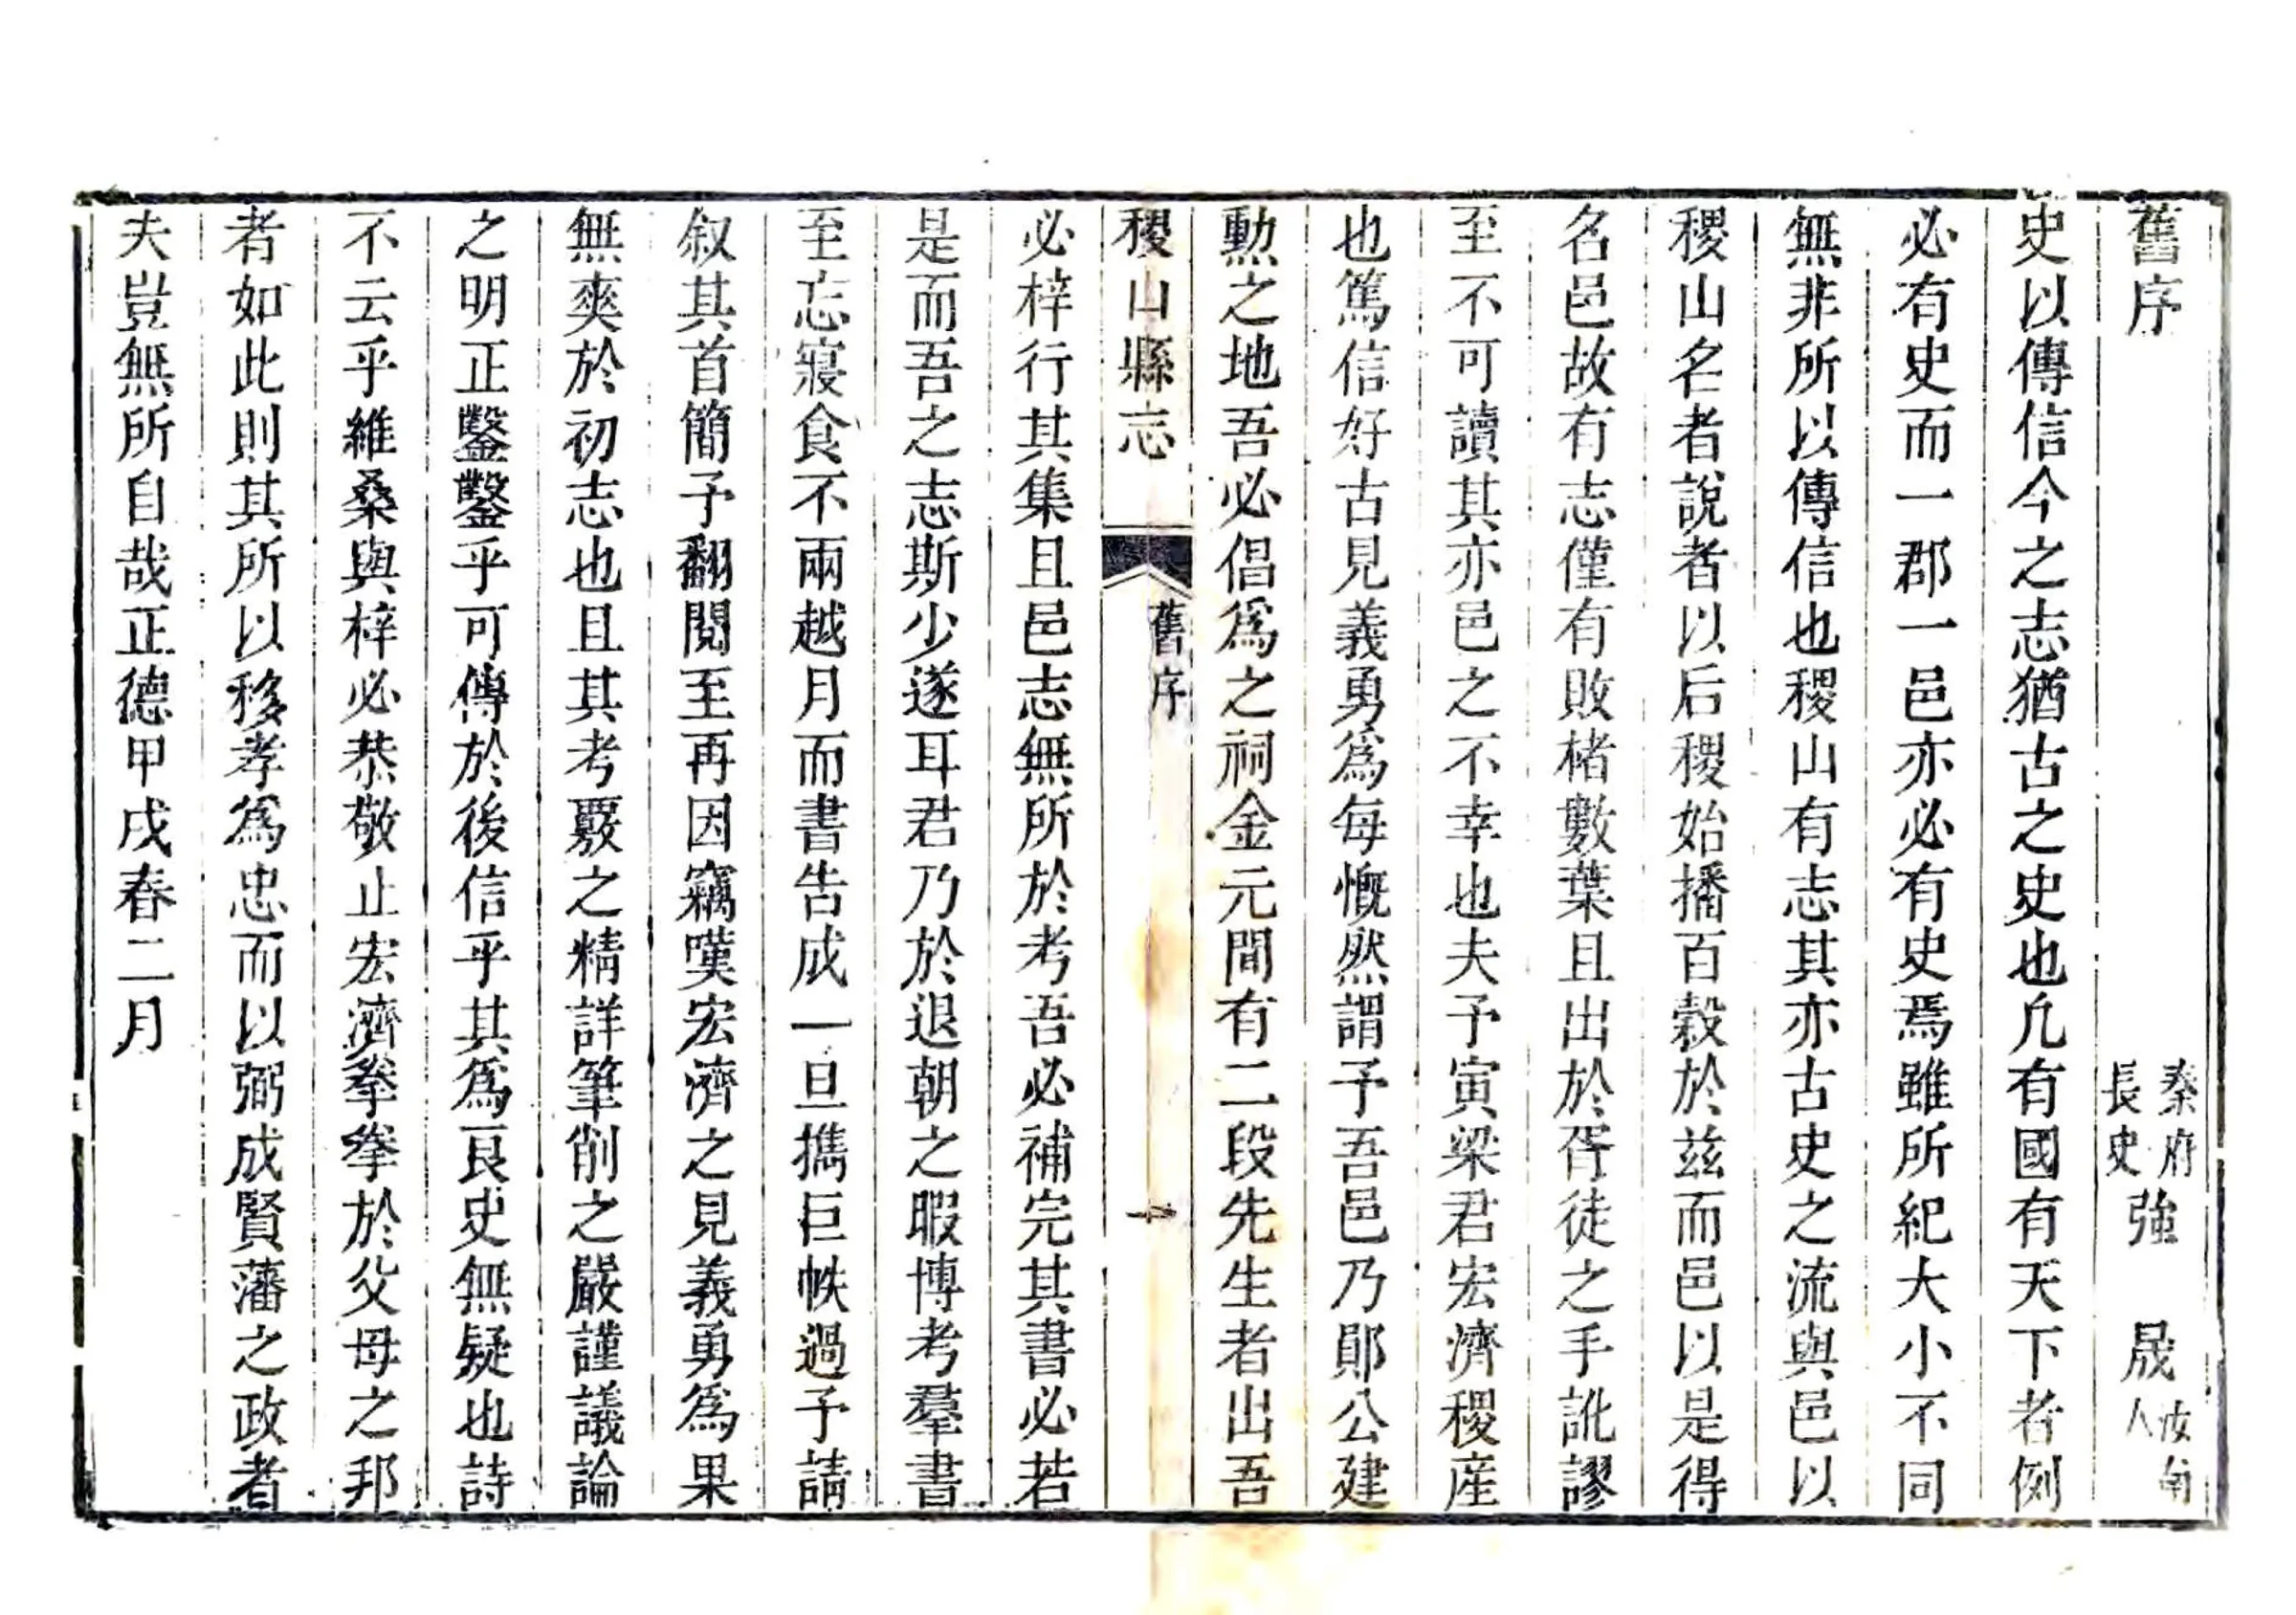 舊序
秦府
長史
強晟
汝南
人
史以傳信今之志猶古之史也凡有國有天下者例
必有史而一郡一邑亦必有史焉雖所紀大小不同
無非所以傳信也稷山有志其亦古史之流與邑以
稷山名者說者以后稷始播百穀於兹而邑以是得
名邑故有志僅有敗楮數葉且出於胥徒之手訛謬
至不可讀其亦邑之不幸也夫予寅梁君宏濟稷産
也篤信好古見義勇爲每慨然謂予吾邑乃鄖公建
勲之地吾必倡爲之祠金元間有二段先生者出吾
稷山縣志
舊序
十
必梓行其集且邑志無所於考吾必補完其書必若
是而吾之志斯少遂耳君乃於退朝之暇博考羣書
至忘寢食不兩越月而書告成一旦攜巨帙過予請
叙其首簡予翻閱至再因竊嘆宏濟之見義勇爲果
無爽於初志也且其考覈之精詳筆削之嚴謹議論
之明正鑿鑿乎可傳於後信乎其爲良史無疑也詩
不云乎維桑與梓必恭敬止宏濟拳拳於父母之邦
者如此則其所以移孝爲忠而以弼成賢藩之政者
夫豈無所自哉正德甲戌春二月